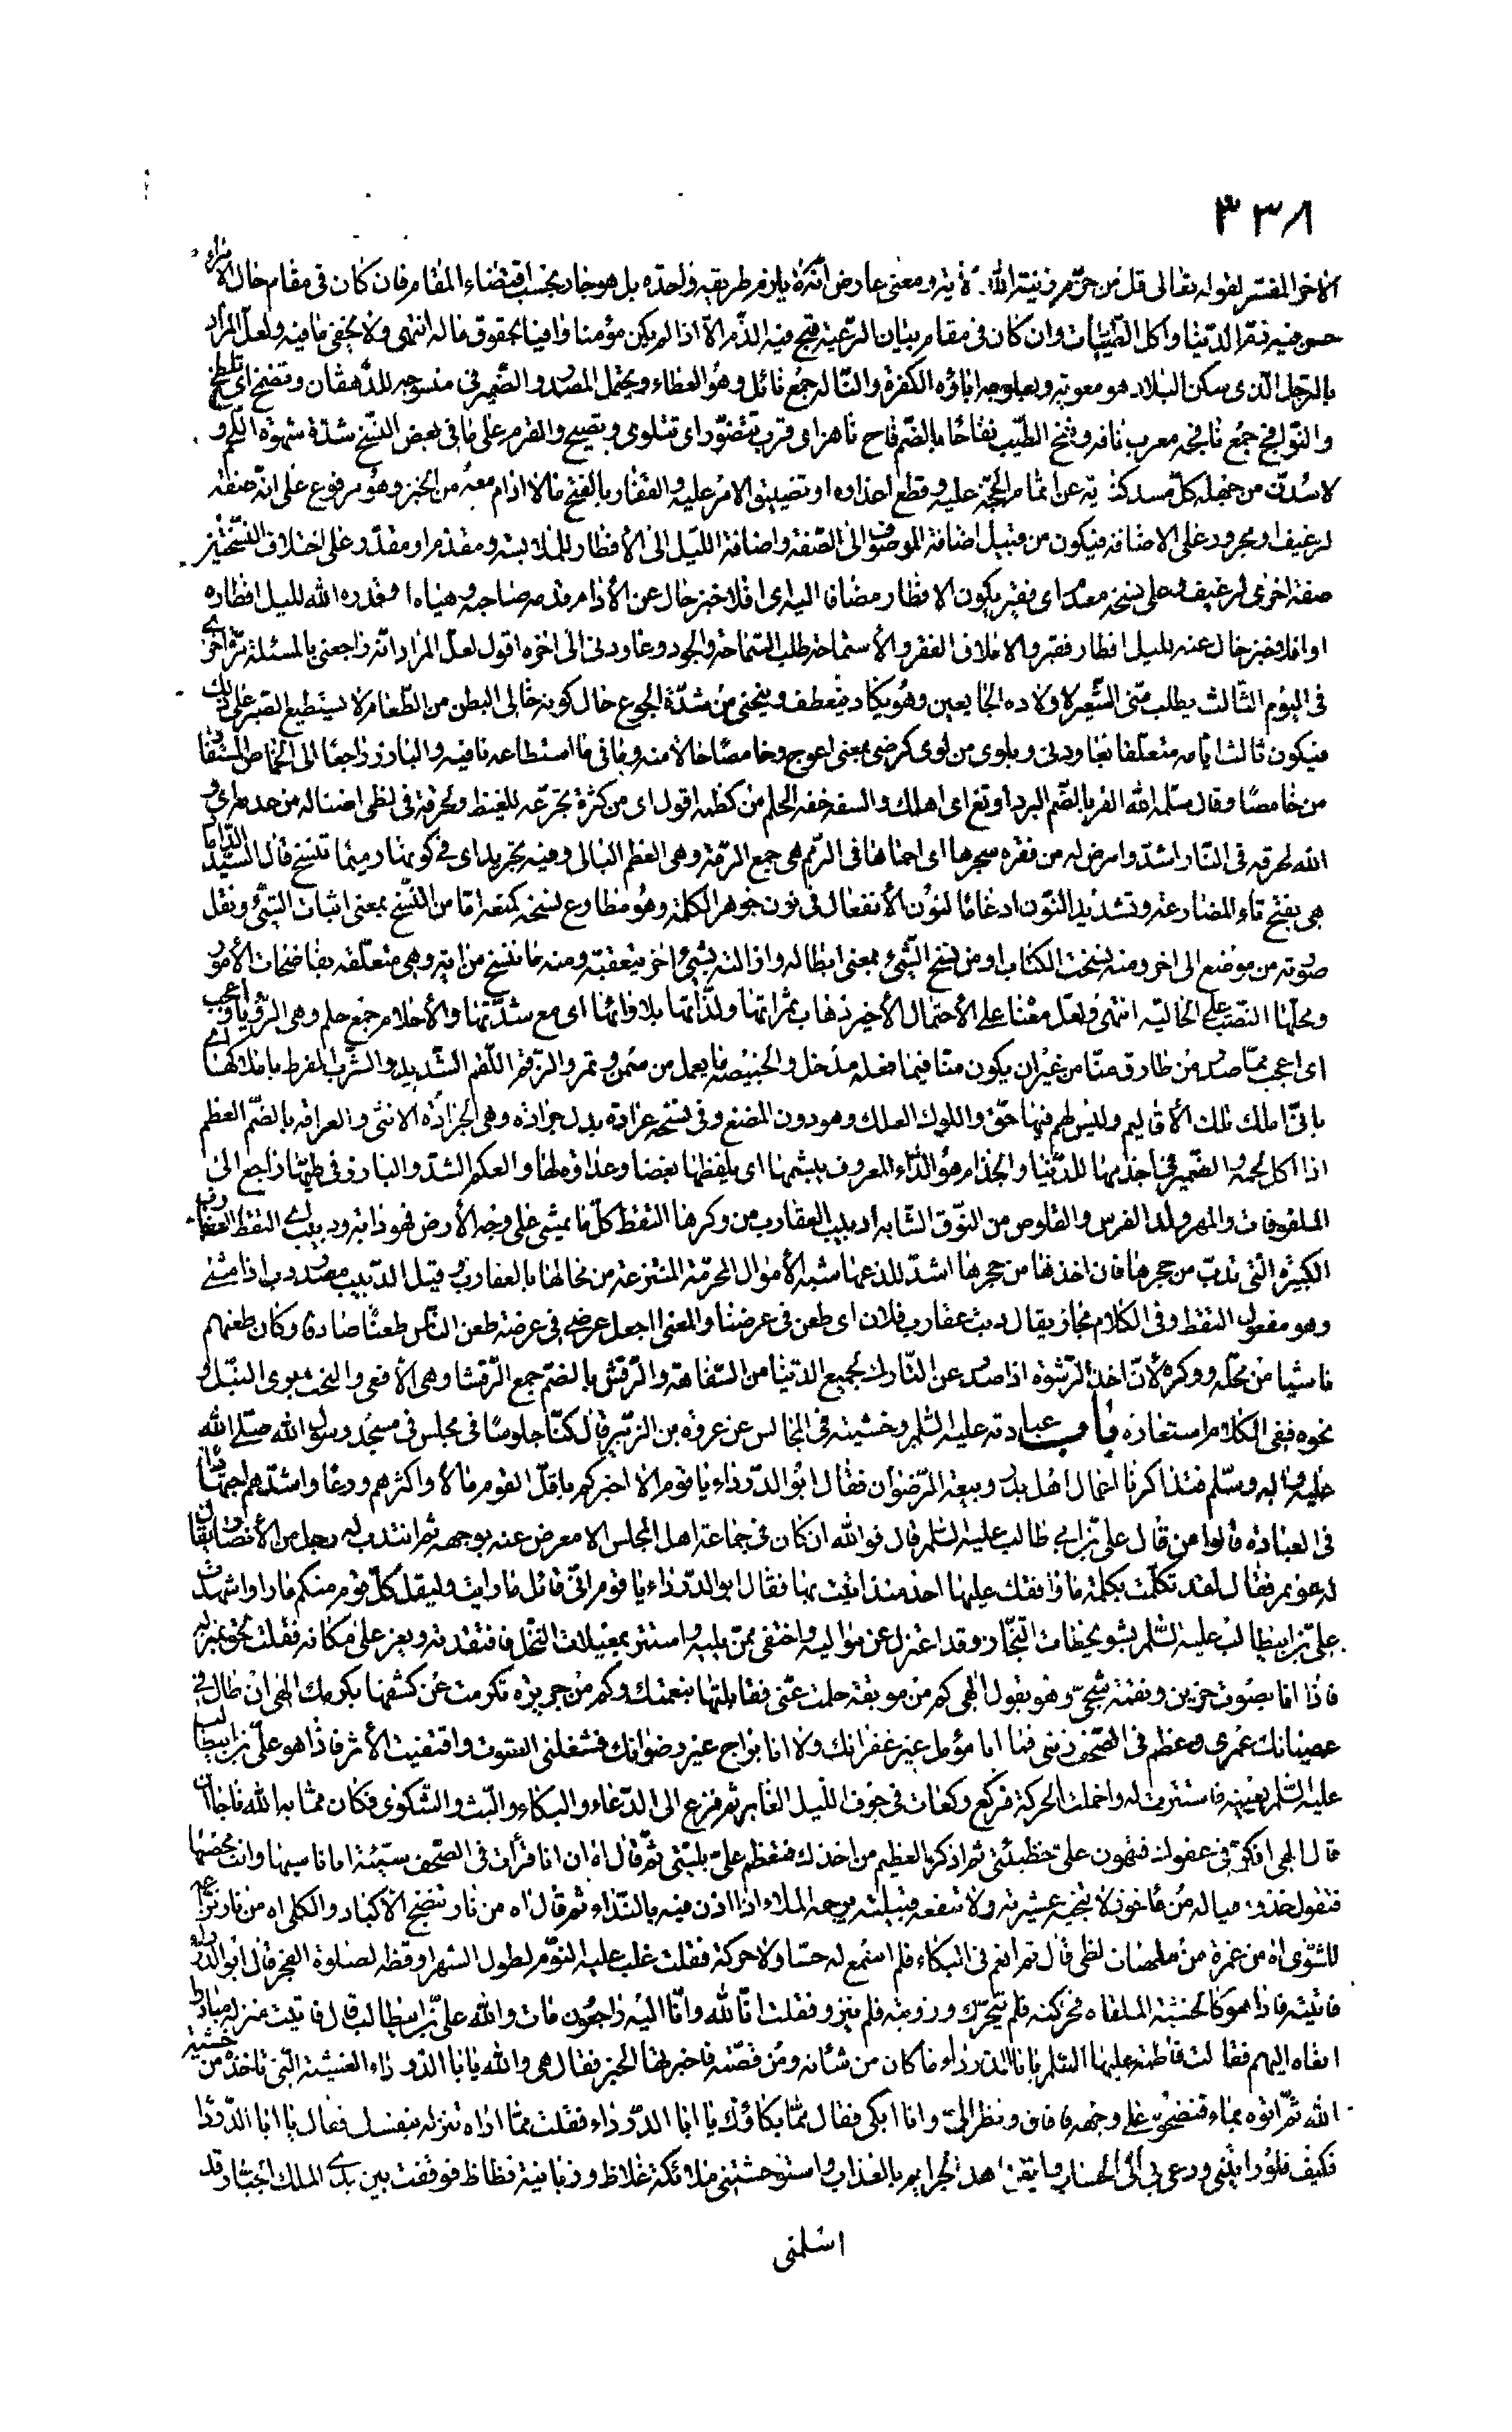 ٣٣٨
الاخر المفسر لقوله تعالى قل من حرّم زينة الله الاية ومعنى عارض انّه لا يلزم طريقه واحدة بل هو جار بحسب اقتضاء المقام فان كان في مقام حال الامراء
حسن فيه تنعّم الدّنيا واكل الطّيّبات وان كان في مقام بيان الرّعية قبح فيه الذّم الّا اذا لم يكن مؤمنا وافيا بحقوق ماله انتهى ولا يخفى ما فيه ولعلّ المراد
بالرّجل الّذي سكن البلاد هو معوية وبعلوجه اباؤه الكفرة والنّاله جمع نائل وهو العطاء ويحتمل المصدر والضّمير في منسوجه للدّهقان وتضمخ اي تلطخ
والنّوافج جمع نافجه معرب نافه ونفخ الطّيب نفاحا بالضّم فاح ناهز اي قرب تتضوّر اي تتلوى وتصيح والقرم على ما في بعض النّسخ شدّة شهوة اللّحم و
لا سُدّت من جهله كلّ مسد كناية عن اتمام الحجّة عليه وقطع اعذاره او تضييق الامر عليه والقفار بالفتح مالا ادام معه من الخبز وهو مرفوع على انّه صفة
لرغيف او مجرور على الاضافه فيكون من قبيل اضافة الموصوف الى الصّفة واضافة اللّيل الى الأفطار للملابسة ومقدّم او مقدّر على اختلاف النّسختين
صفة اخرى لرغيف وعلى نسخة معدم اى فقير يكون الافطار مضافا اليه اى افلا خبز خال عن الأدام قدمه صاحبه وهياه او قدره الله لليل افطاره
او افلا خبز خال عنه بليل افطار فقير والاملاق الفقر والأستماحة طلب السّماحة والجود وعاودنى الى اخره اقول لعلّ المراد انّه راجعنى بالمسئلة مرّة اخرى
فى اليوم الثّالث يطلب منّى الشّعير لاولاده الجايعين وهو يكاد ينعطف وينحنى من شدّة الجوع حال كونه خالى البطن من الطّعام لا يستطيع الصّبر على ذلك
فيكون ثالث ايّامه متعلّقا بعاودنى ويلوى من لوى كرضى بمعنى اعوج وخامصا حالا منه وما فى ما استطاعه نافيه والبارز راجعا الى الخماص المستفاد
من خامصا وقال سلّمه الله القر بالضّم البرد اوتغ اى اهلك والسفه خفه الحلم من كظمه اقول اى من كثرة تجرّعه للغيظ ولحرقة فى لظى اضناله من عدمه اى و
الله لحرقه فى النّار اشدّ وامرض له من فقره سجرها اى احماها فى الرّمم هى جمع الرّمة وهى العظم البالى وفيه تجريد اى فى كونها رميما تنسخ قال السّيّد الدّاماد
هى بفتح تاء المضارعة وتشديد النّون ادغاما لنون الأنفعال فى نون جوهر الكلمة وهو مطاوع نسخه كمنعه امّا من النّسخ بمعنى اثبات الشّئ ونقل
صورته من موضع الى اخر ومنه نسخت الكتاب او من نسخ الشّئ بمعنى ابطاله وازالته بشئ اخر يتعقبه ومنه ما ننسخ من اية وهى متعلّقه بفاضحات الأمور
ومحلّها النّصب على الحاليّة انتهى ولعلّ معناه على الأحتمال الأخير ذهاب ثمراتها ولذّاتها بلاوائها اى مع شدّتها والأحلام جمع حلم وهى الرّؤيا واعجب
اى اعجب ممّا صدر من طارق منّا من غير ان يكون منّا فيما فعله مدخل والخبيصة ما يعمل من سمن وتمر والزّقم اللّقم الشّديد والشّرب المفرط باملاكهنا اى
بانّا ملك تلك الأقاليم وليس لهم فيها حقّ واللوك العلك وهو دون المضغ وفى نسخه عرادة بدل جرادة وهى الجرادة الانثى والعراقه بالضّم العظم
اذا اكل لحمه والضّمير فى اجذمها للدّنيا والجذام هو الدّاء المعروف يبشمها اى يلفظها بغضا وعداوة لها والعكم الشدّ والبارز فى طيّها راجع الى
الملفوفات والمهر ولد الفرس والقلوص من النّوق الشّابه أدبيب العقارب من وكرها التقط كلّ ما يمشى على وجه الأرض فهو دابّة ودبيب اى التقط العقارب
الكبيرة الّتى تدبّ من جحرها فان اخذها من جحرها اشدّ للدغها شبه الأموال المحرّمة المنتزعة من محالها بالعقارب وقيل الدّبيب مصدر دب اذا مشى
وهو مفعول التقط وفى الكلام مجاز يقال دبت عقارب فلان اى طعن فى عرضنا والمعنى ااجعل عرضى فى عرضة طعن النّاس طعنا صادقا وكان طعنهم
ماشيا من محلّه ووكره لأنّ اخذ الرّشوة اذا صدر عن التّارك لجميع الدّنيا من السّفاهة والرّقش بالضّم جمع الرّقشاء وهى الأفعى والنخب برى النبّل و
نحوه ففى الكلام استعارة باب عبادته عليه السّلم وخشيته فى المجالس عن عروة بن الزّبير قال كنّا جلوسا فى مجلس فى مسجد رسول الله صلّى الله
عليه واله وسلّم فتذاكرنا اعمال اهل بدر وبيعة الرّضوان فقال ابو الدّرداء يا قوم الا اخبركم باقلّ القوم مالا واكثرهم ورعا واشدّهم اجتهادا
فى العبادة قالوا من قال علىّ بن ابي طالب عليه السّلم قال فوالله ان كان فى جماعة اهل المجلس الا معرض عنه بوجهه ثم انتدب له رجل من الأنصار فقال
له عويمر لقد تكلّمت بكلمة ما وافقك عليها احد منذ اتيت بها فقال ابو الدّرداء يا قوم انّى قائل ما رايت وليقل كلّ قوم منكم ما راوا شهدت
علىّ بن ابيطالب عليه السّلم بشويحطات النّجار وقد اعتزل عن مواليه واختفى ممّن يليه واستتر بمغيلات النّخل فافتقدته وبعد علىّ مكانه فقلت لحق بمنزله
فاذا انا بصوت حزين ونغمة شجىّ وهو يقول الهى كم من موبقة حلمت عنّى فقابلتها بنعمتك وكم من جريرة تكرمت عن كشفها بكرمك الهى ان طال فى
عصيانك عمرى وعظم فى الصّحف ذنبى فما انا مؤمل غير غفرانك ولا انا براج غير رضوانك فشغلنى الصّوت واقتفيت الأثر فاذا هو علىّ بن ابيطالب
عليه السّلم بعينه فاستترت له واخملت الحركة فركع ركعات فى جوف اللّيل الغابر ثم فزع الى الدّعاء والبكاء والبث والشّكوى فكان ممّا به الله ناجاه ان
قال الهى افكر فى عفوك فتهون علىّ خطيئتى ثم اذكر العظيم من اخذك فتعظم علىّ بليّتى ثمّ قال اه ان انا قرأت فى الصّحف سيّئة انا ناسيها وانت محصيها
فتقول خذوه فياله من مأخوذ لا تنجيه عشيرته ولا تنفعه قبيلته يرحمه الملاء اذا اذن فيه بالنّداء ثم قال اه من نار تنضج الاكباد والكلى اه من نار نزّاعة
للشّوى اه من غمرة من ملهبات لظى قال ثم انعم فى البكاء فلم اسمع له حسّا ولا حركة فقلت غلب عليه النّوم لطول السّهر اوقظه لصلوة الفجر قال ابو الدّرداء
فاتيته فاذا هو كالخشبة الملقاه فحركته فلم يتحرّك وزويته فلم ينزو فقلت انّا لله وانّا اليه راجعون مات والله علىّ بن ابيطالب قال فاتيت منزله مبادرا
انعاه اليهم فقالت فاطمة عليها السّلم يا ابا الدّرداء ما كان من شانه ومن قصّته فاخبرتها الخبر فقال هى والله يا ابا الدّرداء الغشية الّتى تاخذه من خشية
الله ثمّ اتوه بماء فنضحوه على وجهه فافاق ونظر الىّ وانا ابكى فقال ممّا بكاؤك يا ابا الدّرداء فقلت ممّا اراه تنزله بنفسك فقال يا ابا الدّرداء
فكيف فلو رايتنى ودعى بى الى الحساب وايقن اهل الجرايم بالعذاب واستوحشتنى ملائكة غلاظ وزبانية فظاظ فوقفت بين يدى الملك الجبّار قد
اسلمنى